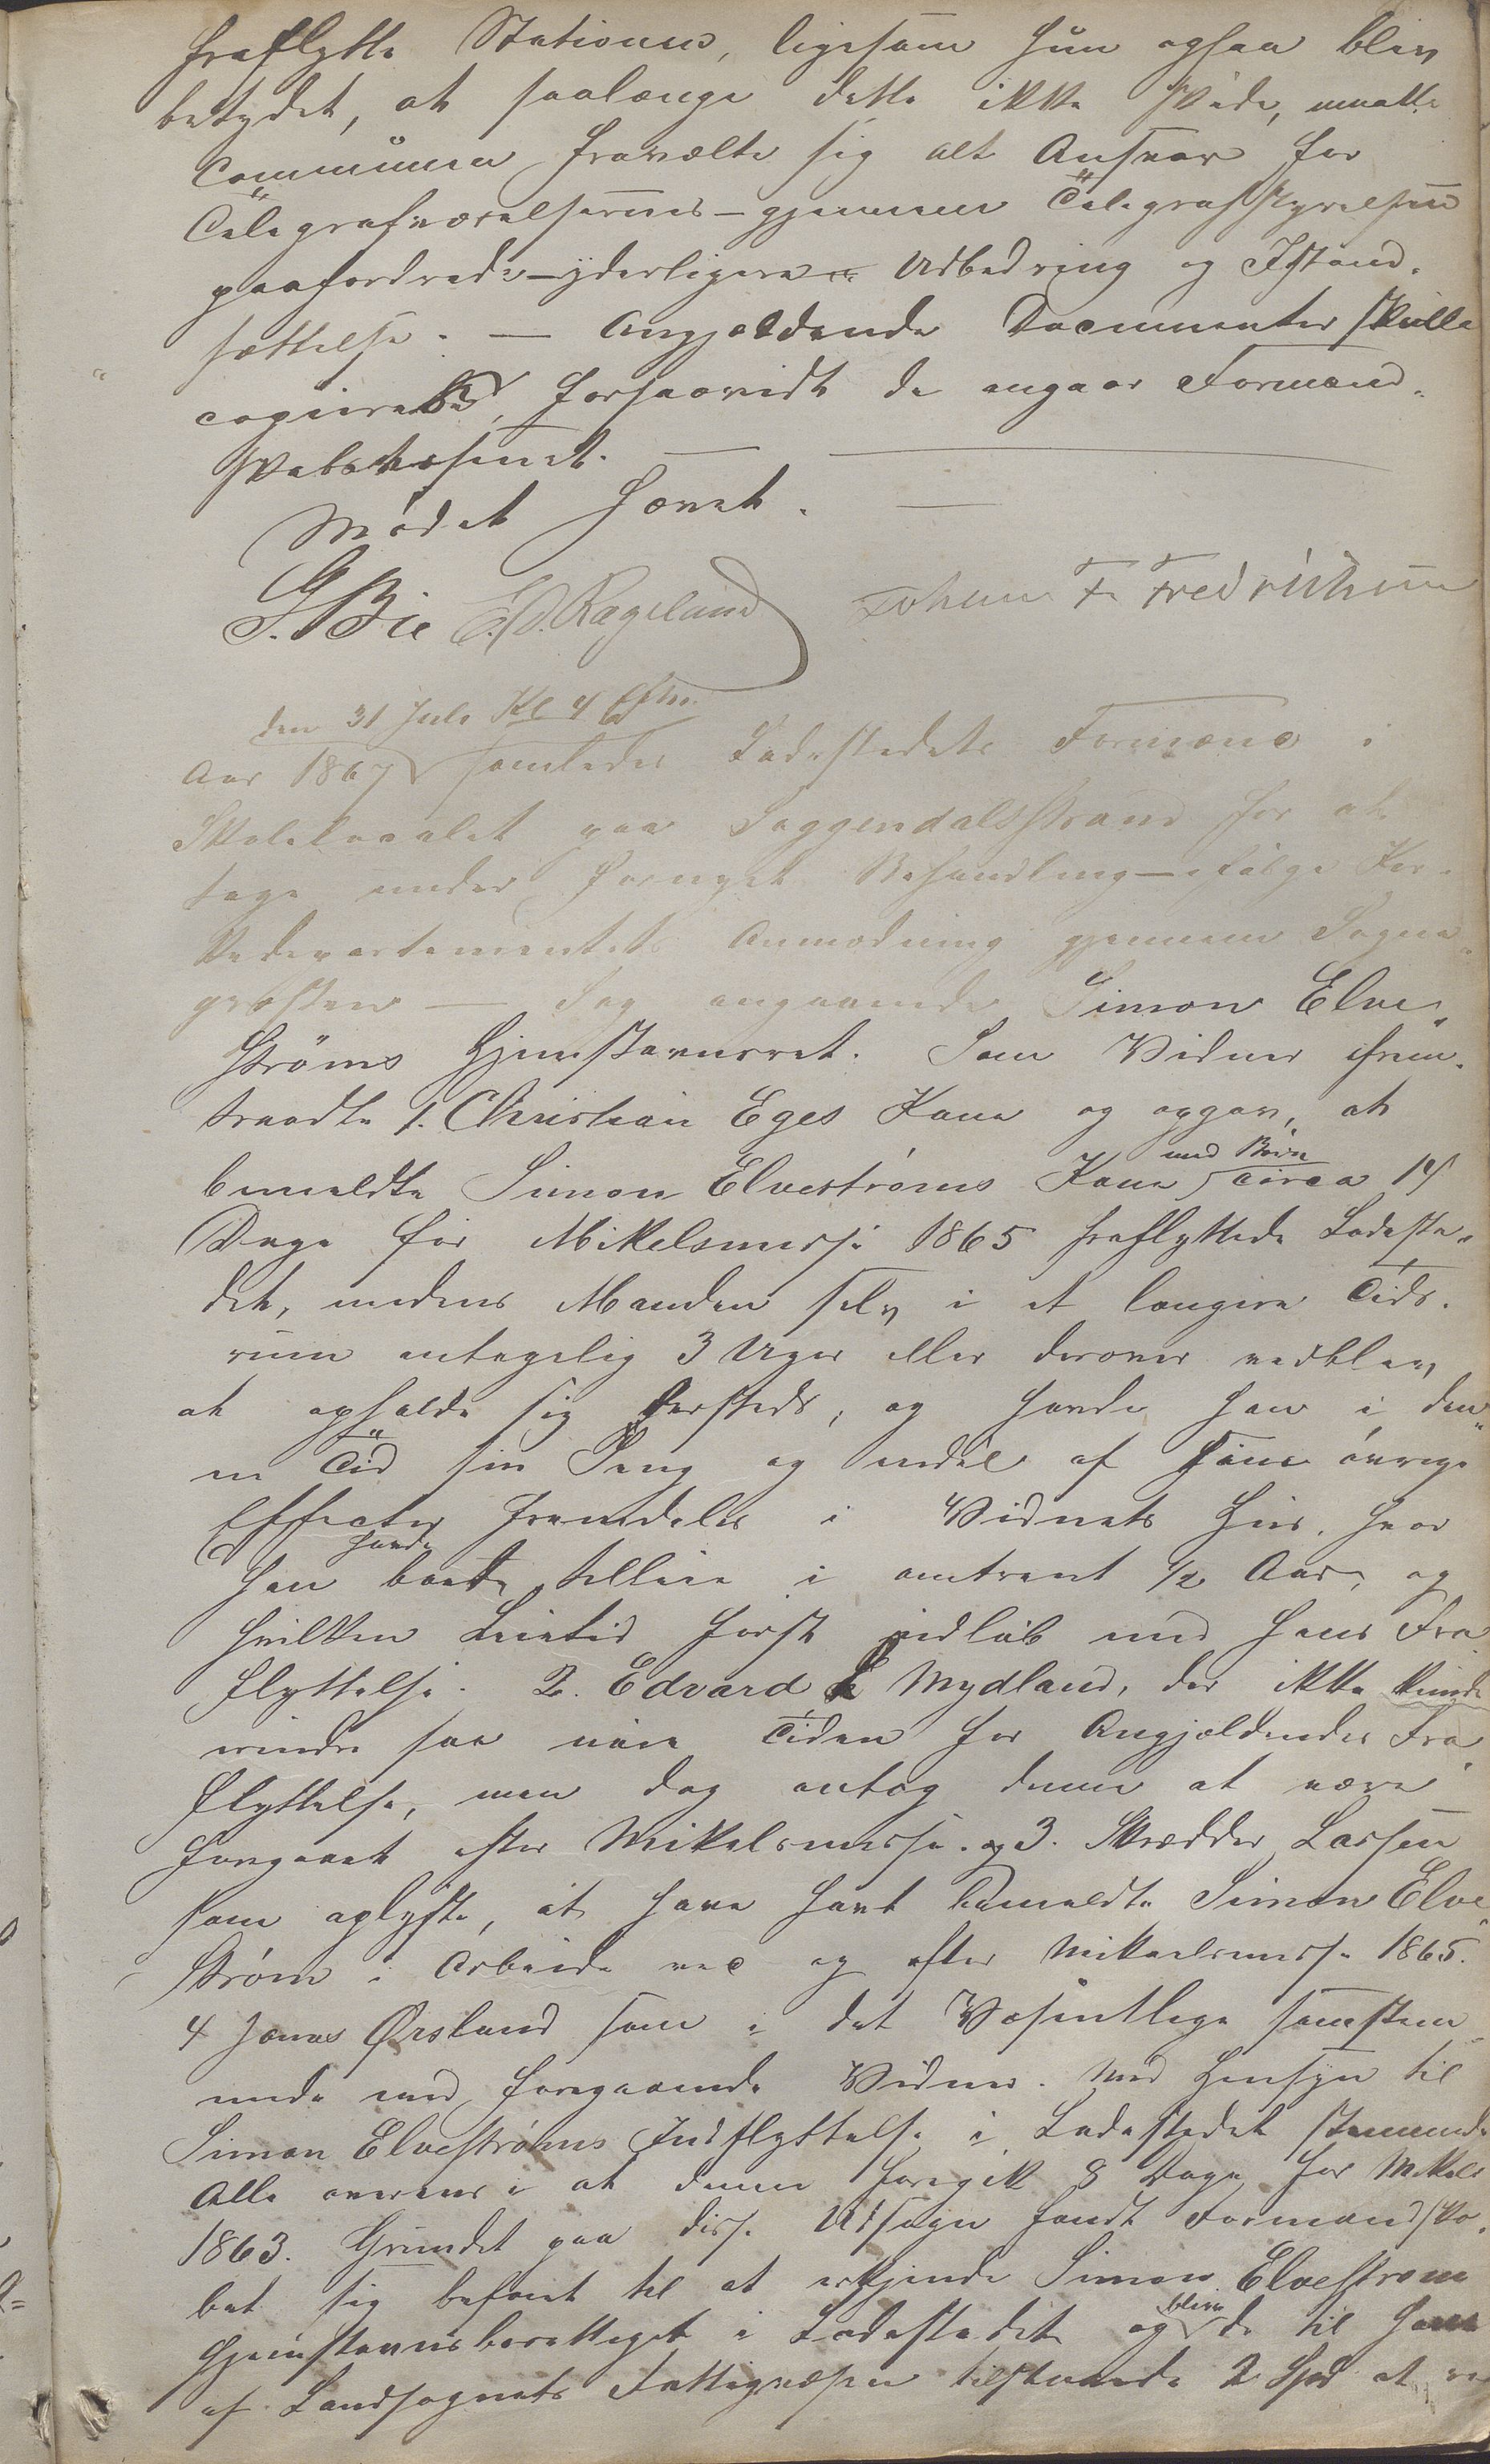 fraflytte Stationen, ligesom hun ogsaa blev
betydet, at saalænge dette ikke skede, maatte
Communen fravælte sig alt Ansvar for
Telegrafværelsernes - gjennem Telegrafstyrelsen
paafordrede - yderligere Udbedring og Istand-
sættelse. — Angjældende Documenter skulle
copieres, forsaavidt de angaar Formand-
skabsvæsenet. —
Mødet hævet. —
G. Bie E. O. Rageland Johan Fr Fredrichsen
den 31 Juli Kl 4 Eftm.
Aar 1867 samledes Ladestedets Formænd i
Skolelocalet paa Soggendalsstrand for at
tage under fornyet Behandling - ifølge Kir-
kedepartementets Anmodning gjennem Sogne-
præsten — Sag angaaende Simon Elve-
strøms Hjemstavnsret. Som Vidner frem-
traadte 1. Christian Eges Kone og opgav, at
bemeldte Simon Elvestrøms Kone med Børn circa 14
Dage før Mikelsmesse 1865 fraflyttede Ladeste-
det, medens Manden selv i et længere Tids-
rum antagelig 3 Uger eller derover vedblev
at opholde sig dersteds, og havde han i den-
ne Tid sin Seng og endel af sine øvrige
Effecter fremdeles i Vidnets Huus, hvor
han havde boet tilleie i omtrent 1/2 Aar, og
hvilken Leietid først udløb med hans Fra-
flyttelse. 2. Edvard Mydland, der ikke kunde
erindre saa nøie Tiden for Angjældendes Fra-
flyttelse, men dog antog denne at være
foregaaet efter Mikelsmesse. og 3. Skrædder Larsen
som oplyste, at have havt bemeldte Simon Elve-
strøm i Arbeide ved og efter Mikaelsmesse 1865.
4 Jonas Ørsland som i det Væsentlige samstem-
mede med foregaaende Vidner. Med Hensyn til
Simon Elvestrøms Indflyttelse i Ladestedet stemmede
Alle overens i at denne foregik 8 Dage før Mikels
1863. Grundet paa disse Udsagn fandt Formandska-
bet sig beføiet til at erkjende Simon Elvestrøm
Hjemstavnsberettiget i Ladestedet og blive de til ham
af Landsognets Fattigvæsen tilstaaede 2 Spd at